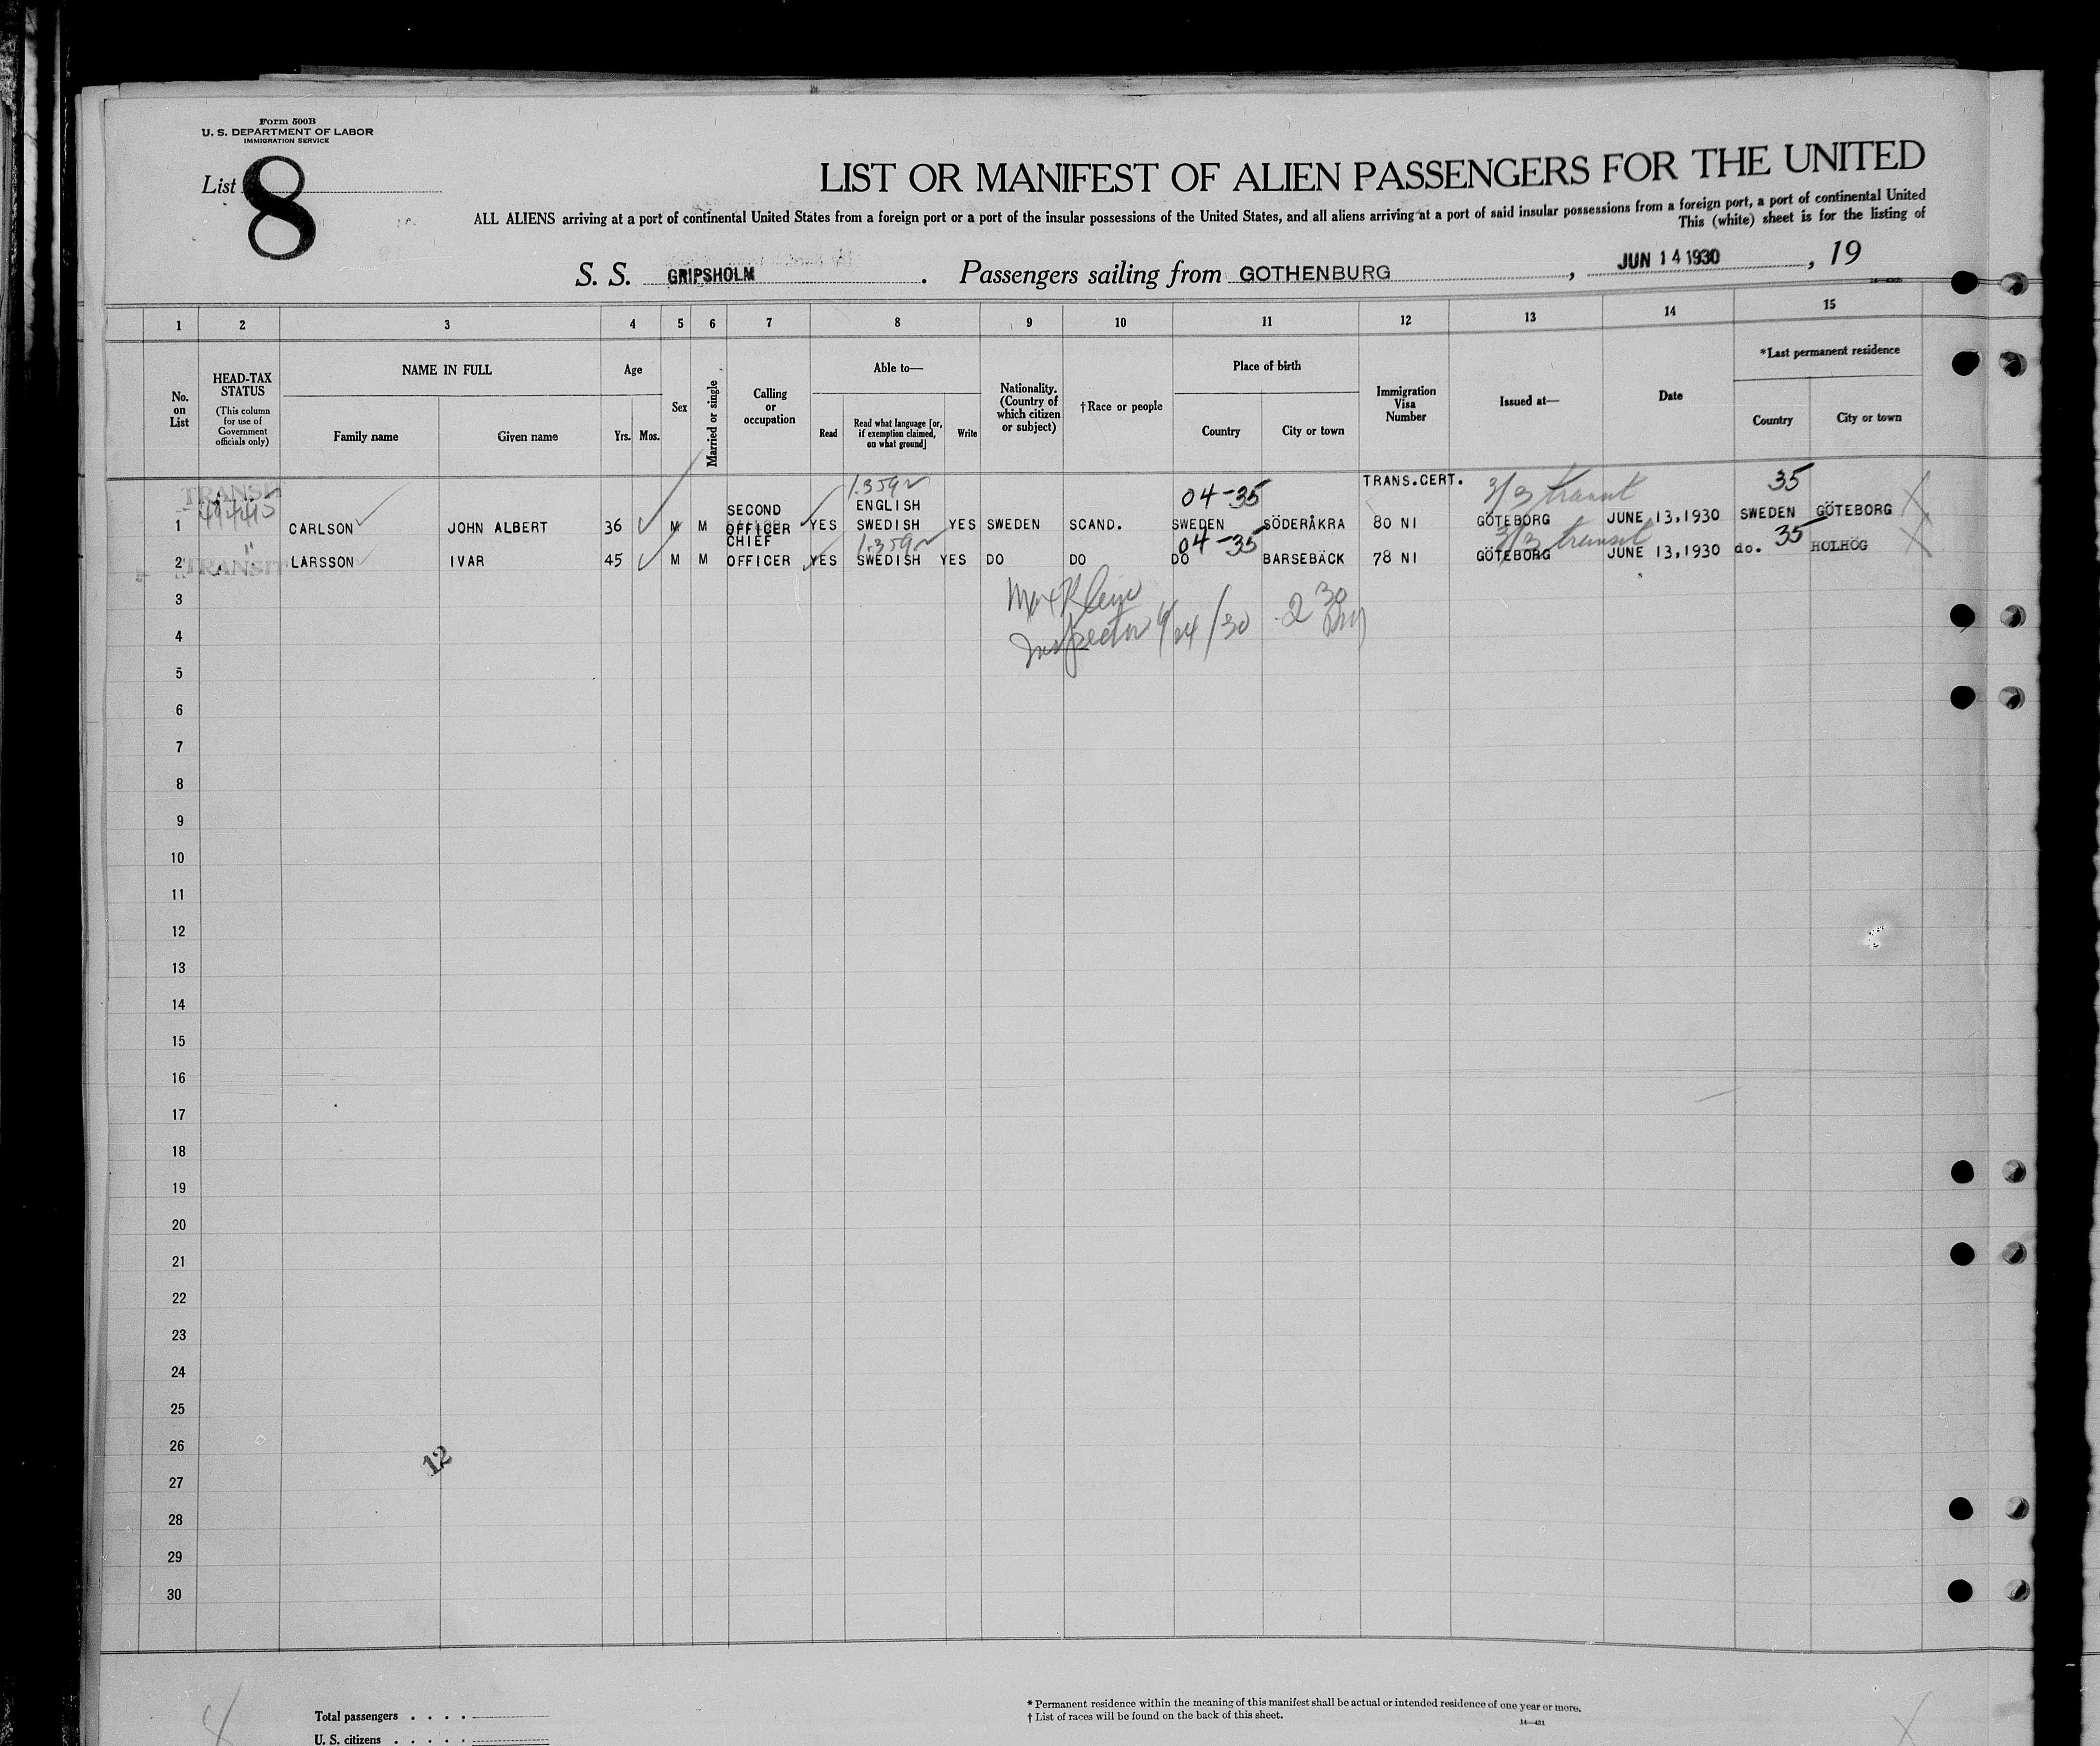 Form 500B
U. S. DEPARTMENT OF LABOR
IMMIGRATION SERVICE
List 8
LIST OR MANIFEST OF ALIEN PASSENGERS FOR THE UNITED
ALL ALIENS arriving at a port of continental United States from a foreign port or a port of the insular possessions of the United States, and all aliens arriving at a port of said insular possessions from a foreign port, a port of continental United
This (white) sheet is for the listing of
S. S. GRIPSHOLM . Passengers sailing from GOTHENBURG , JUN 14 1930 , 19
1 2 3 4 5 6 7 8 9 10 11 12 13 14 15
No. on List
HEAD-TAX STATUS
(This column for use of Government officials only)
NAME IN FULL
Family name
Given name
Age
Yrs. Mos.
Sex
Married or single
Calling or occupation
Able to—
Read
Read what language [or, if exemption claimed, on what ground]
Write
Nationality. (Country of which citizen or subject)
†Race or people
Place of birth
Country
City or town
Immigration Visa Number
Issued at—
Date
*Last permanent residence
Country
City or town
TRANSIT 1.359 04-35 TRANS.CERT. 3/3 transit 35
1 CARLSON JOHN ALBERT 36 M M SECOND OFFICER YES ENGLISH SWEDISH YES SWEDEN SCAND. SWEDEN SÖDERÅKRA 80 NI GÖTEBORG JUNE 13,1930 SWEDEN GÖTEBORG
1.359 04-35 3/3 transit 35
2 TRANSIT " LARSSON IVAR 45 M M CHIEF OFFICER YES SWEDISH YES DO DO DO BARSEBÄCK 78 NI GÖTEBORG JUNE 13,1930 do. HOLHÖG
3
Max Klein
4
Inspector 6/24/30 2 30 PM
5
6
7
8
9
10
11
12
13
14
15
16
17
18
19
20
21
22
23
24
25
26
12
27
28
29
30
* Permanent residence within the meaning of this manifest shall be actual or intended residence of one year or more.
† List of races will be found on the back of this sheet.
Total passengers . . . .
U. S. citizens . . . . .